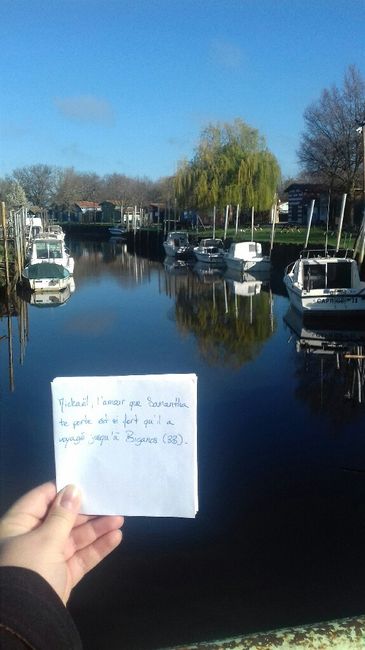 Mickaël, l'amour que Samantha
te porte est si fort qu'il a
voyagé jusqu'à Biganos (33).
CAPRICE II